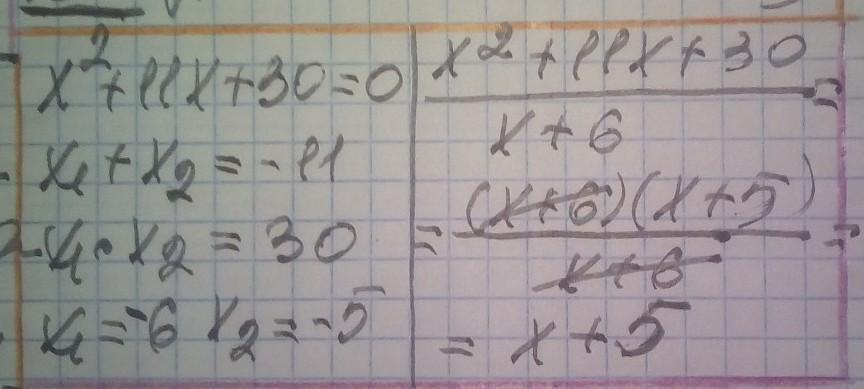 x²+11x+30=0
x₁+x₂=-11
x₁·x₂=30
x₁=-6 x₂=-5
x²+11x+30
x+6
=
=
(x+6)(x+5)
x+6
=
= x+5